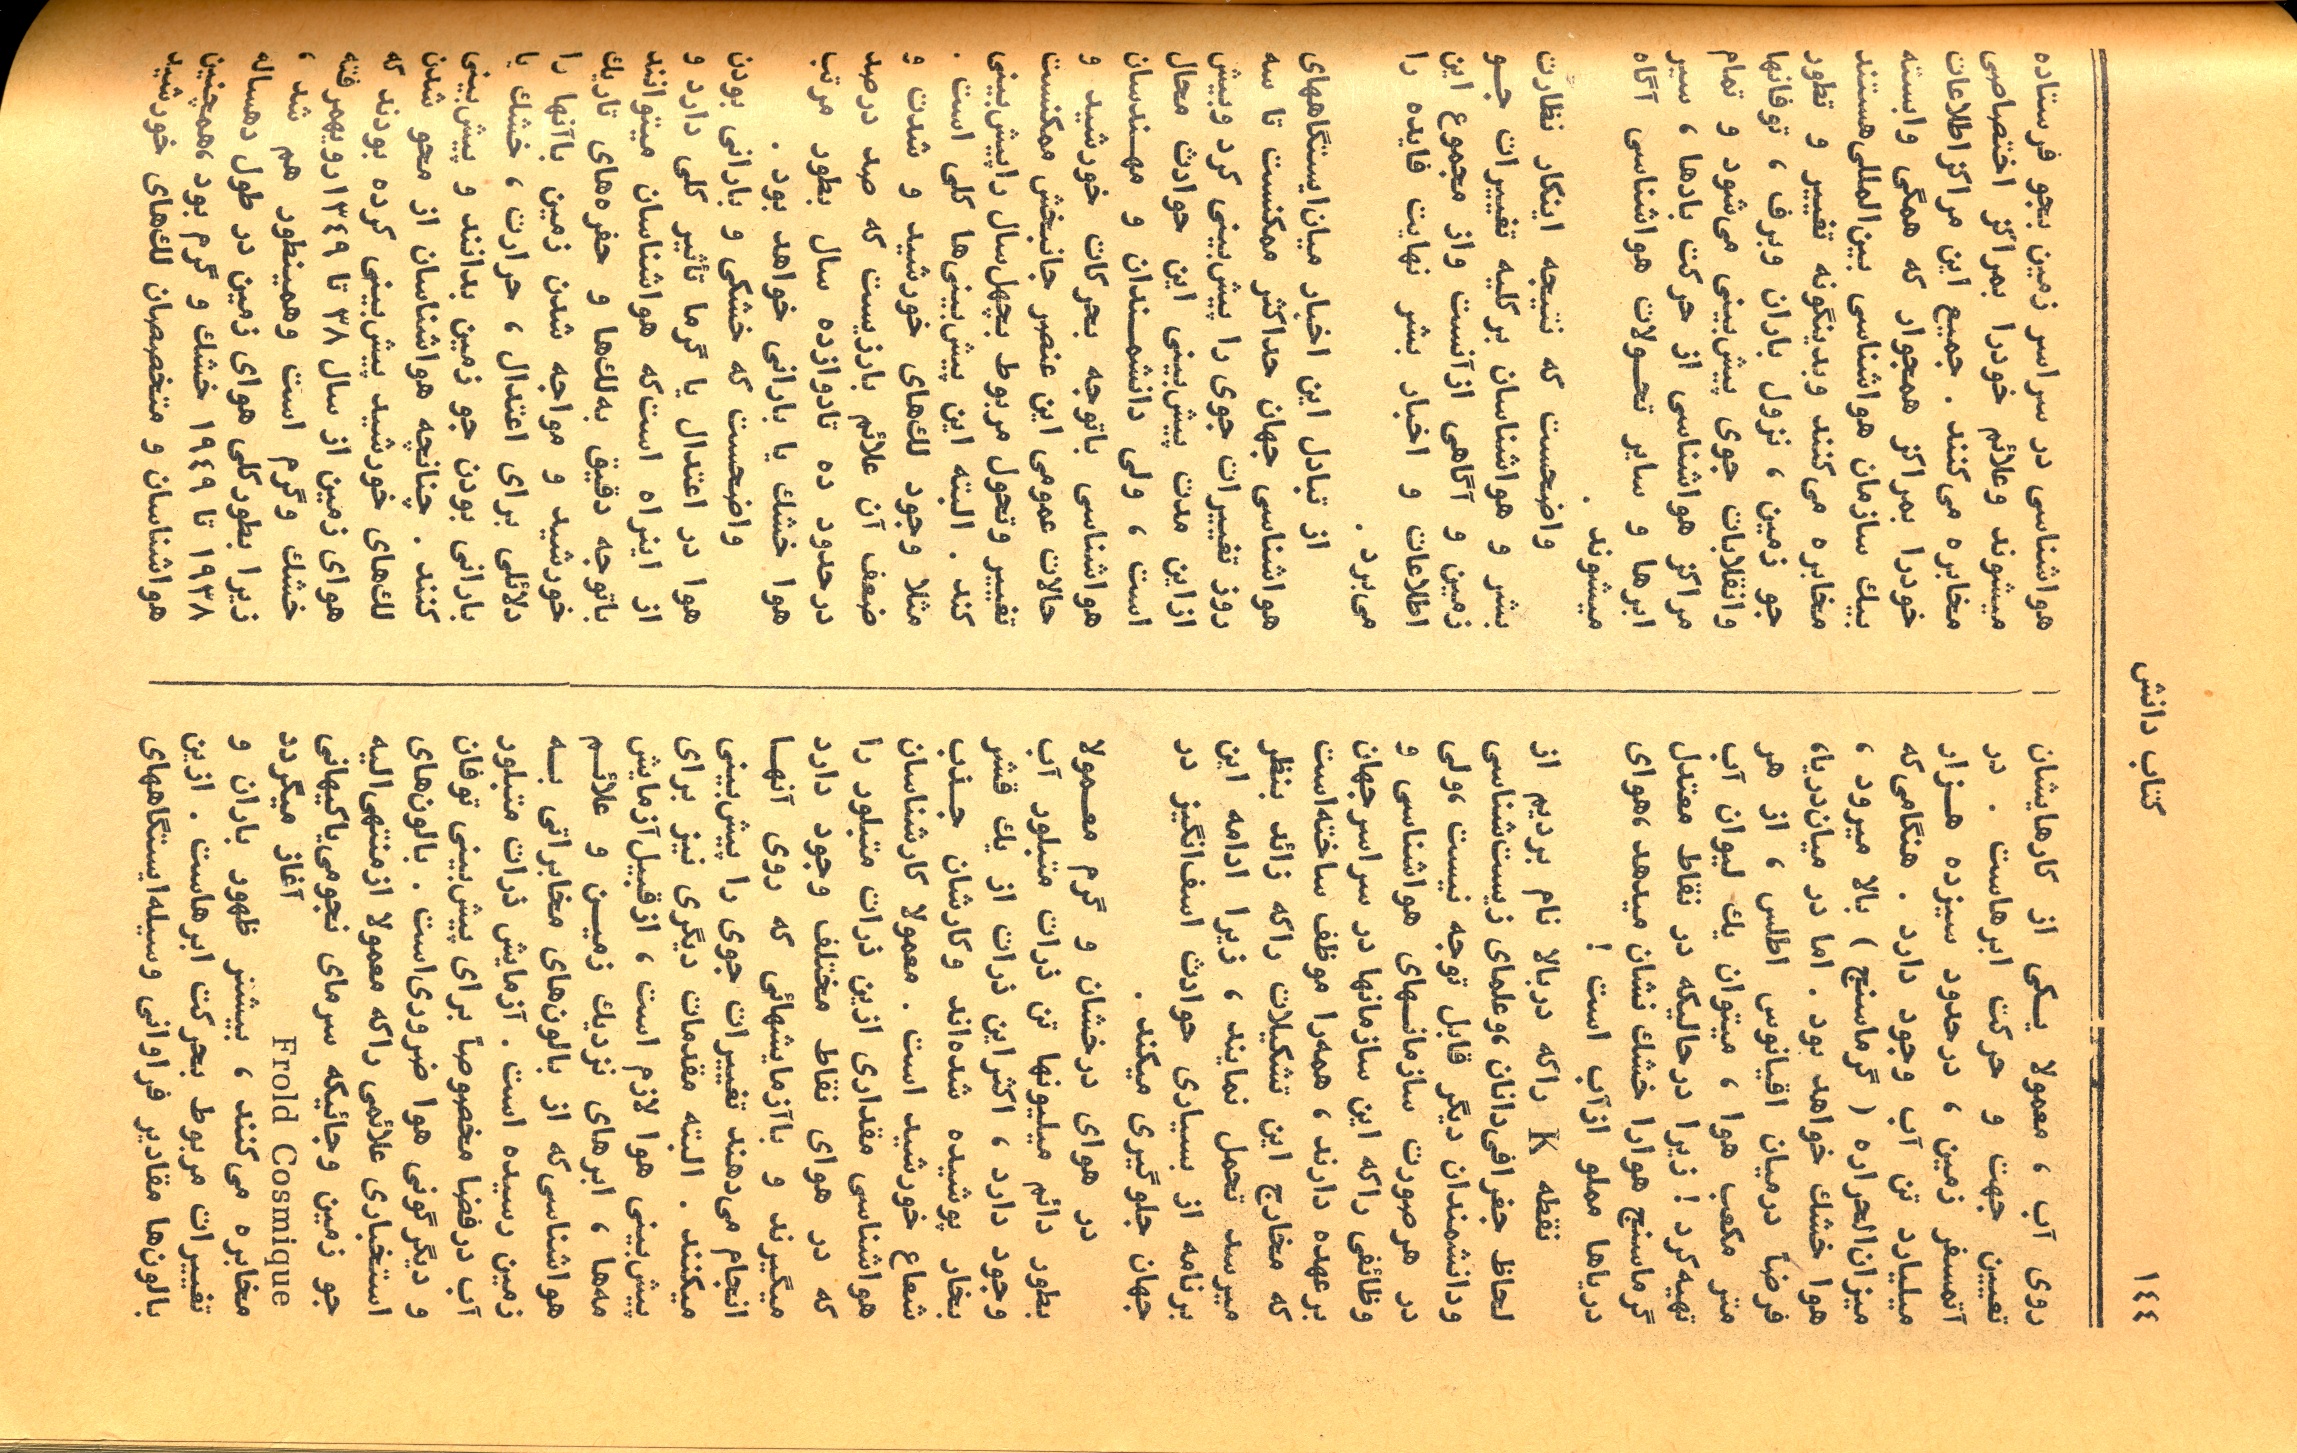 ١٤٤
کتاب دانش
روی آب ، معمولا یکی از کارهایشان
تعیین جهت و حرکت ابرهاست . در
آتمسفر زمین ، درحدود سیزده هزار
میلیارد تن آب وجود دارد . هنگامی‌که
میزان‌الحراره ( گرماسنج ) بالا میرود ،
هوا خشك خواهد بود . اما در میان‌دریا،
فرضاً درمیان اقیانوس اطلس ، از هر
متر مکعب هوا ، میتوان یك لیوان آب
تهیه‌کرد ! زیرا درحالیکه در نقاط معتدل
گرماسنج هوارا خشك نشان میدهد ،هوای
دریاها مملو ازآب است !
نقطه K راکه دربالا نام بردیم از
لحاظ جغرافی‌دانان ،وعلمای زیست‌شناسی
ودانشمندان دیگر قابل توجه نیست ،ولی
در هرصورت سازمانهای هواشناسی و
وظائفی راکه این سازمانها در سراسرجهان
برعهده دارند ، همه‌را موظف ساخته‌است
که مخارج این تشکیلات راکه زائد بنظر
میرسد تحمل نمایند ، زیرا ادامه این
برنامه از بسیاری حوادث اسف‌انگیز در
جهان جلوگیری میکند .
در هوای درخشان و گرم معمولا
بطور دائم میلیونها تن ذرات متبلور آب
وجود دارد ، اکثراین ذرات از یك قشر
بخار پوشیده شده‌اند وکارشان جذب
شعاع خورشید است . معمولا کارشناسان
هواشناسی مقداری ازین ذرات متبلور را
که در هوای نقاط مختلف وجود دارد
میگیرند و باآزمایشهائی که روی آنها
انجام می‌دهند تغییرات جوی را پیش‌بینی
میکنند . البته مقدمات دیگری نیز برای
پیش‌بینی هوا لازم است ، ازقبیل‌آزمایش
مه‌ها ، ابرهای نزدیك زمین و علائم
هواشناسی‌که از بالون‌های مخابراتی به
زمین رسیده است . آزمایش ذرات متبلور
آب درفضا مخصوصاً برای پیش‌بینی توفان
و دیگرگونی هوا ضروری‌است . بالون‌های
استخباری علائمی راکه معمولا ازمنتهی‌الیه
جو زمین وجائیکه سرمای نجومی‌یاکیهانی
Frold Cosmique آغاز میگردد
مخابره می‌کنند ، بیشتر ظهور باران و
تغییرات مربوط بحرکت ابرهاست . ازین
بالون‌ها مقادیر فراوانی وسیله‌ایستگاههای
هواشناسی در سراسر زمین بجو فرستاده
میشوند وعلائم خودرا بمراکز اختصاصی
مخابره می‌کنند . جمیع این مراکزاطلاعات
خودرا بمراکز همجوار که همگی وابسته
بیك سازمان هواشناسی بین‌المللی‌هستند
مخابره می‌کنند وبدینگونه تغییر و تطور
جو زمین ، نزول باران وبرف ، توفانها
وانقلابات جوی پیش‌بینی می‌شود و تمام
مراکز هواشناسی از حرکت بادها ، سیر
ابرها و سایر تحولات هواشناسی آگاه
میشوند .
واضحست که نتیجه اینکار نظارت
بشر و هواشناسان برکلیه تغییرات جو
زمین و آگاهی ازآنست واز مجموع این
اطلاعات و اخبار بشر نهایت فایده را
می‌برد .
از تبادل این اخبار میان‌ایستگاههای
هواشناسی جهان حداکثر ممکنست تا سه
روز تغییرات جوی را پیش‌بینی کرد وبیش
ازاین مدت پیش‌بینی این حوادث محال
است ، ولی دانشمندان و مهندسان
هواشناسی باتوجه بحرکات خورشید و
حالات عمومی این عنصر جانبخش ممکنست
تغییر وتحول مربوط بچهل‌سال راپیش‌بینی
کند . البته این پیش‌بینی‌ها کلی است .
مثلا وجود لك‌های خورشید و شدت و
ضعف آن علائم بارزیست که صد درصد
درحدود ده تادوازده سال بطور مرتب
هوا خشك یا بارانی خواهد بود .
واضحست که خشکی و بارانی بودن
هوا در اعتدال یا گرما تأثیر کلی دارد و
از اینراه است‌که هواشناسان میتوانند
باتوجه دقیق به‌لك‌ها و حفره‌های تاریك
خورشید و مواجه شدن زمین باآنها را
دلائلی برای اعتدال ، حرارت ، خشك یا
بارانی بودن جو زمین بدانند و پیش‌بینی
کنند . چنانچه هواشناسان از محو شدن
لك‌های خورشید پیش‌بینی کرده بودند که
هوای زمین از سال ٣٨ تا ١٣٤٩رویهمرفته
خشك وگرم است وهمینطور هم شد ،
زیرا بطورکلی هوای زمین در طول دهساله
١٩٣٨ تا ١٩٤٩ خشك و گرم بود ،همچنین
هواشناسان و متخصصان لك‌های خورشید